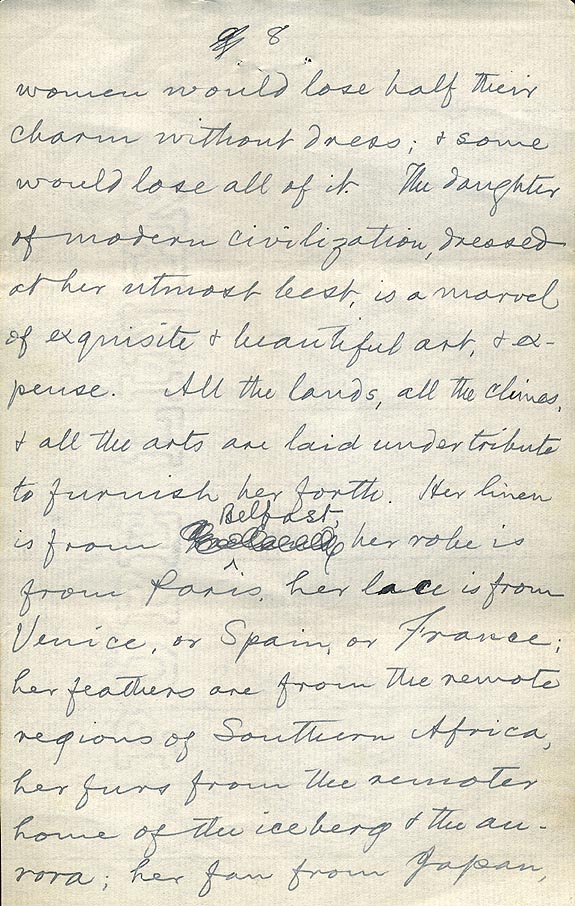 8
women would lose half their
charm without dress; & some
would lose all of it. The daughter
of modern civilization, dressed
at her utmost best, is a marvel
of exquisite & beautiful art, & ex-
pense. All the lands, all the climes,
& all the arts are laid under tribute
to furnish her forth. Her linen
Belfast,
is from her robe is
from Paris, her lace is from
Venice, or Spain, or France;
her feathers are from the remote
regions of Southern Africa,
her furs from the remoter
home of the iceberg & the au-
rora; her fan from Japan,